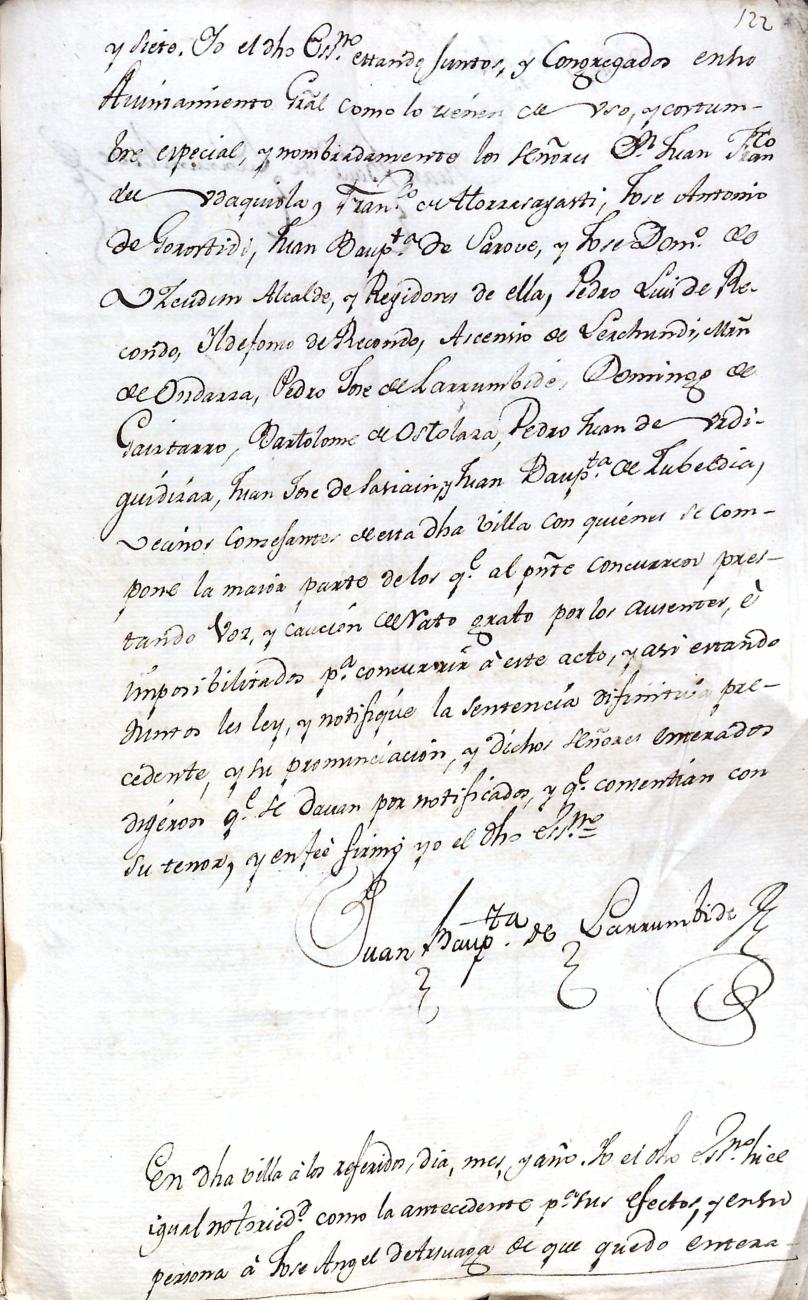 122
y siete. Yo el dho Essno. estando juntos, y Congregados en su
Aiuntamiento Gral como lo tienen de uso, y costum-
bre especial, y nombradamente los señores Dn. Juan Franco
de Vdaquiola, Franco. de Atorrasagasti, Jose Antonio
de Gorostidi, Juan Baupta. de Sarove, y Jose Domo. de
Vzcudun Alcalde, y Regidores de ella, Pedro Luis de Re-
condo, Ildefonso de Recondo, Ascensio de Lerchundi, Mrn
de Ondarra, Pedro Jose de Larrumbide, Domingo de
Gaintarro, Bartolome de Ostolaza, Pedro Juan de Vrdi-
guidirar, Juan Jose de Sasiain, y Juan Baupta. de Lubeldia,
Vecinos Concejantes de esta dha villa con quiénes se com-
pone la maior parte de los qe. al pnte concurren pres-
tando Voz, y caución de rato grato por los ausentes, è
imposibilitados pa. concurrir à este acto, y asi estando
Juntos les ley, y notifiqúe la sentencia difinitiva pre-
cedente, y su pronunciación, y dichos señores enterados
dijéron qe. se davan por notificados, y qe. consentian con
su tenor, y en feè firmé yo el dho essno=
Juan Baupta. de Larrumbide
En dha villa à los referidos, dia, mes, y año. Yo el dho Essno. hice
igual notoriedd. como la antecedente pa. sus efectos, y en su
persona à Jose Angel de Arsuaga de que quedo entera-